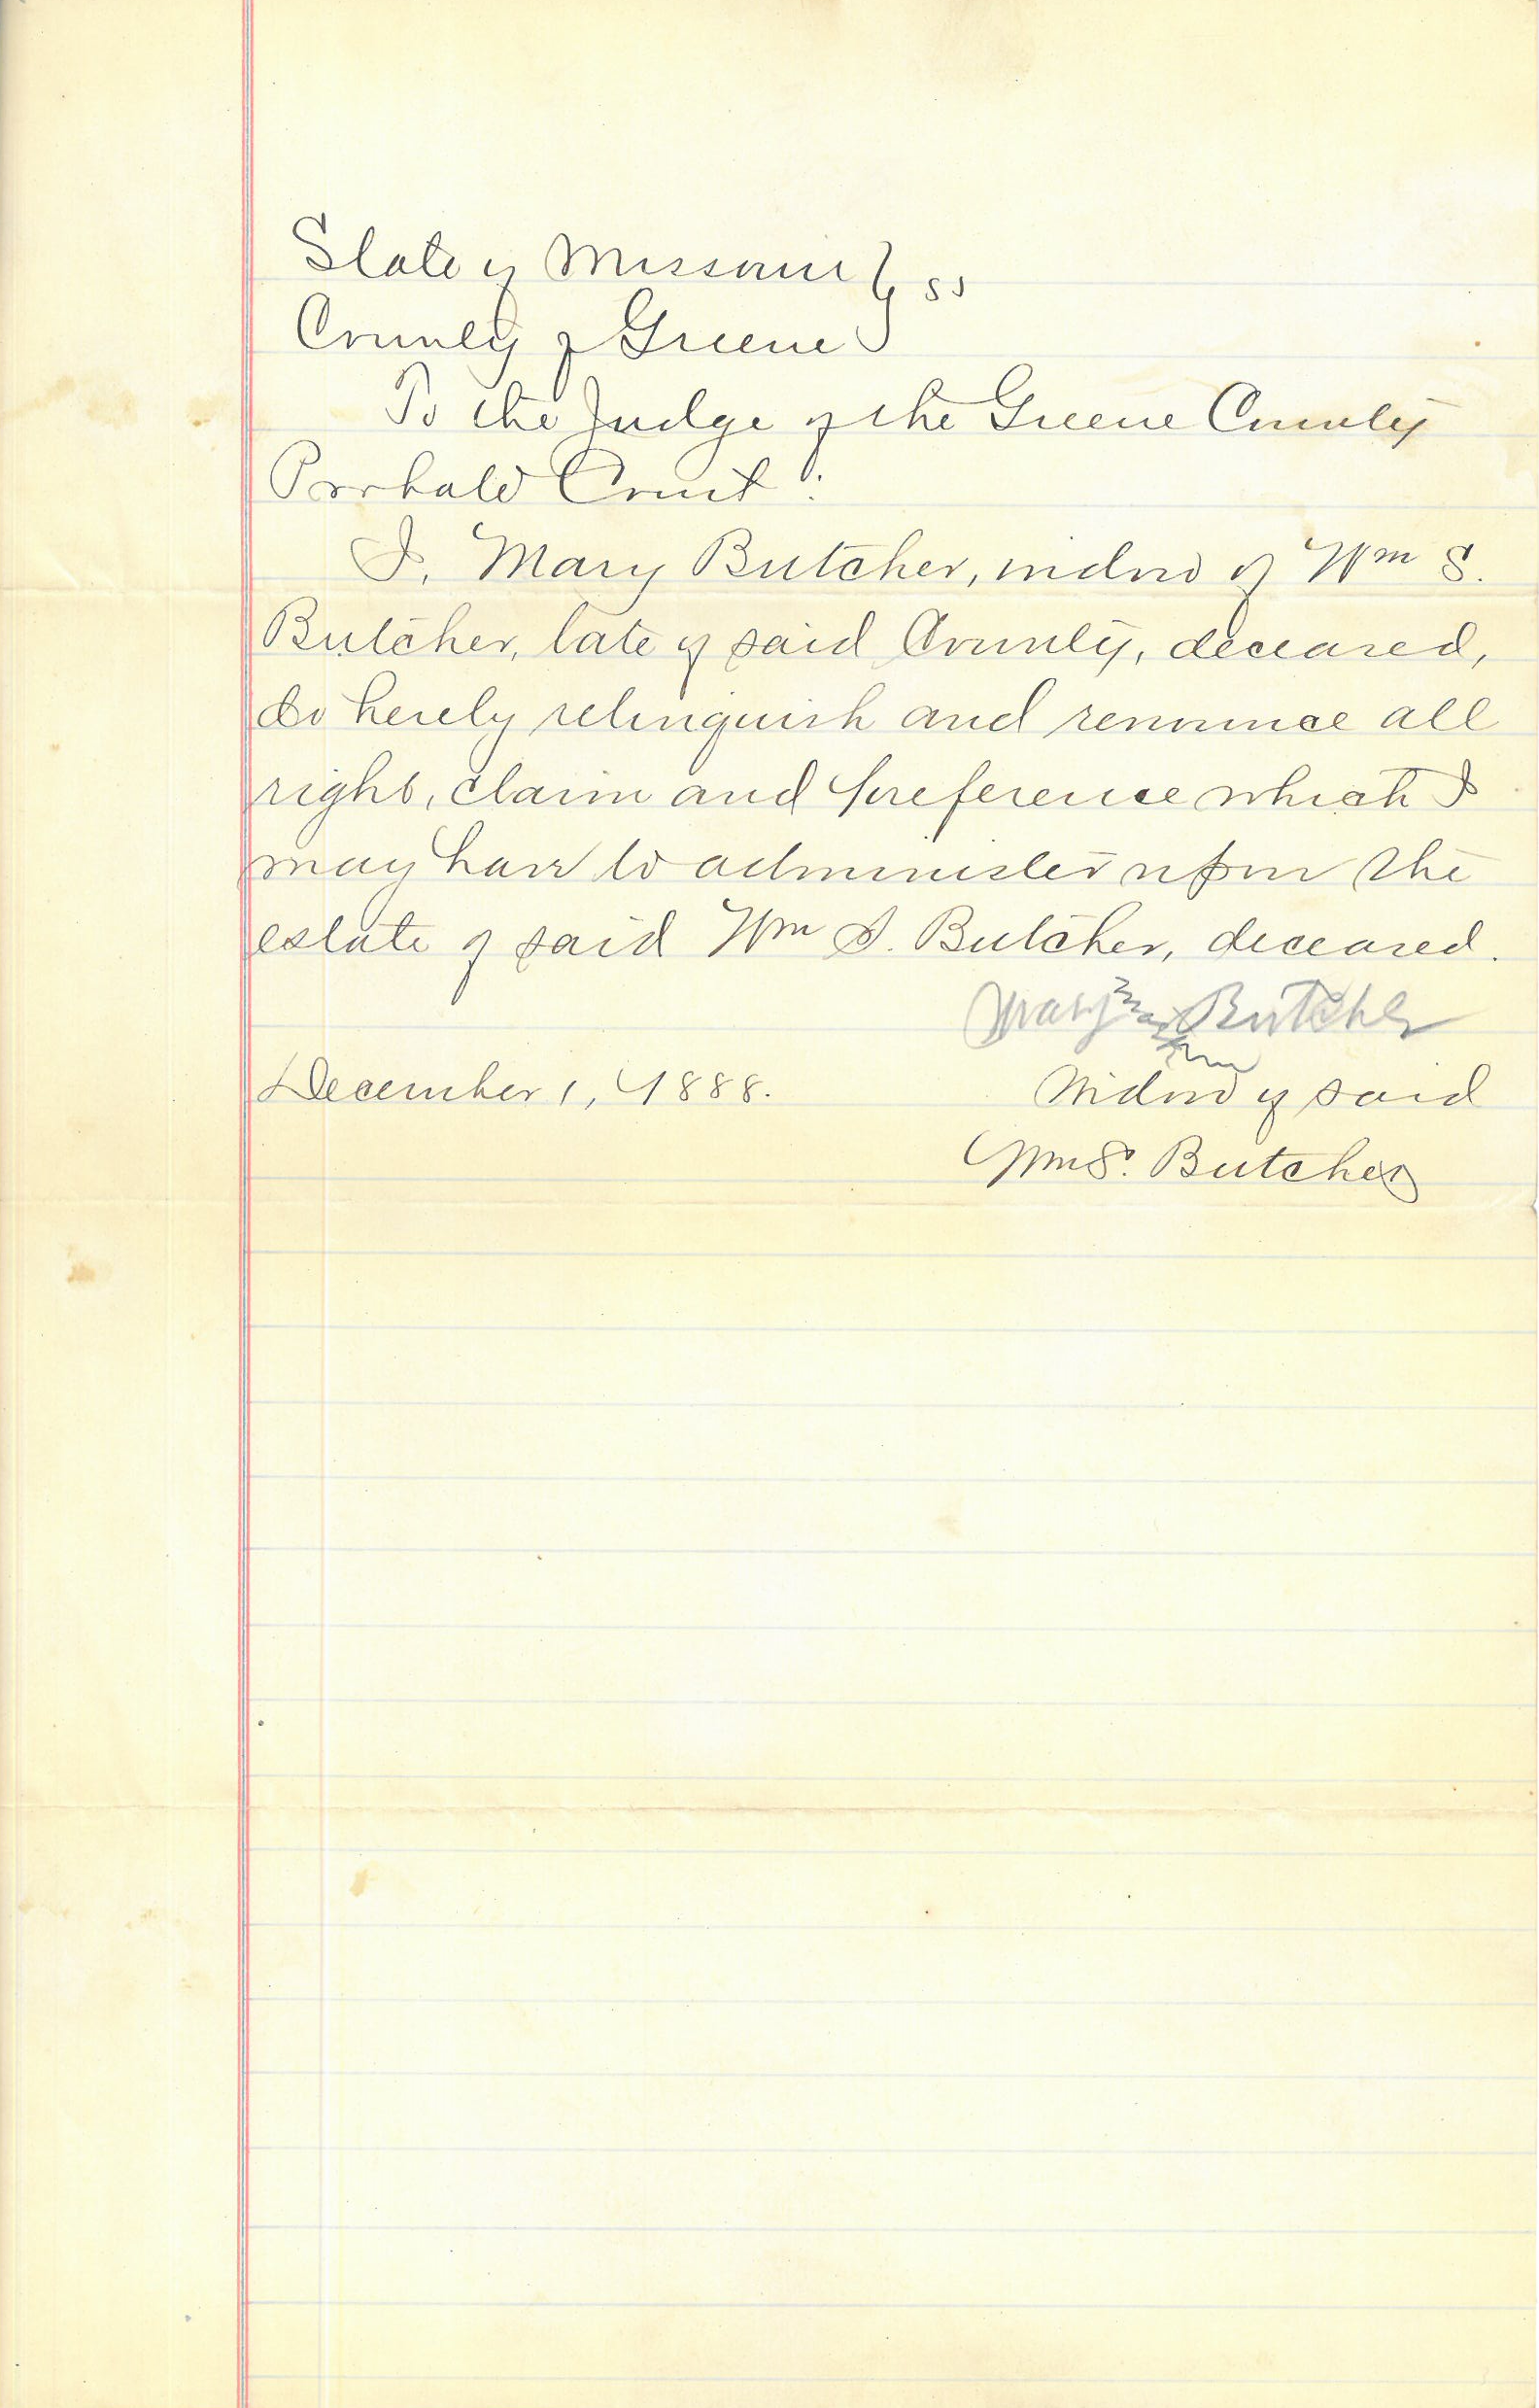 State of Missouri } ss
County of Greene
To the Judge of the Greene County
Probate Court :
I, Mary Butcher, widow of Wm S.
Butcher, late of said County, deceased,
do hereby relinquish and renounce all
right, claim and preference which I
may have to administer upon the
estate of said Wm S. Butcher, deceased.
Mary Butcher
December 1, 1888. Widow of said
Wm S. Butcher